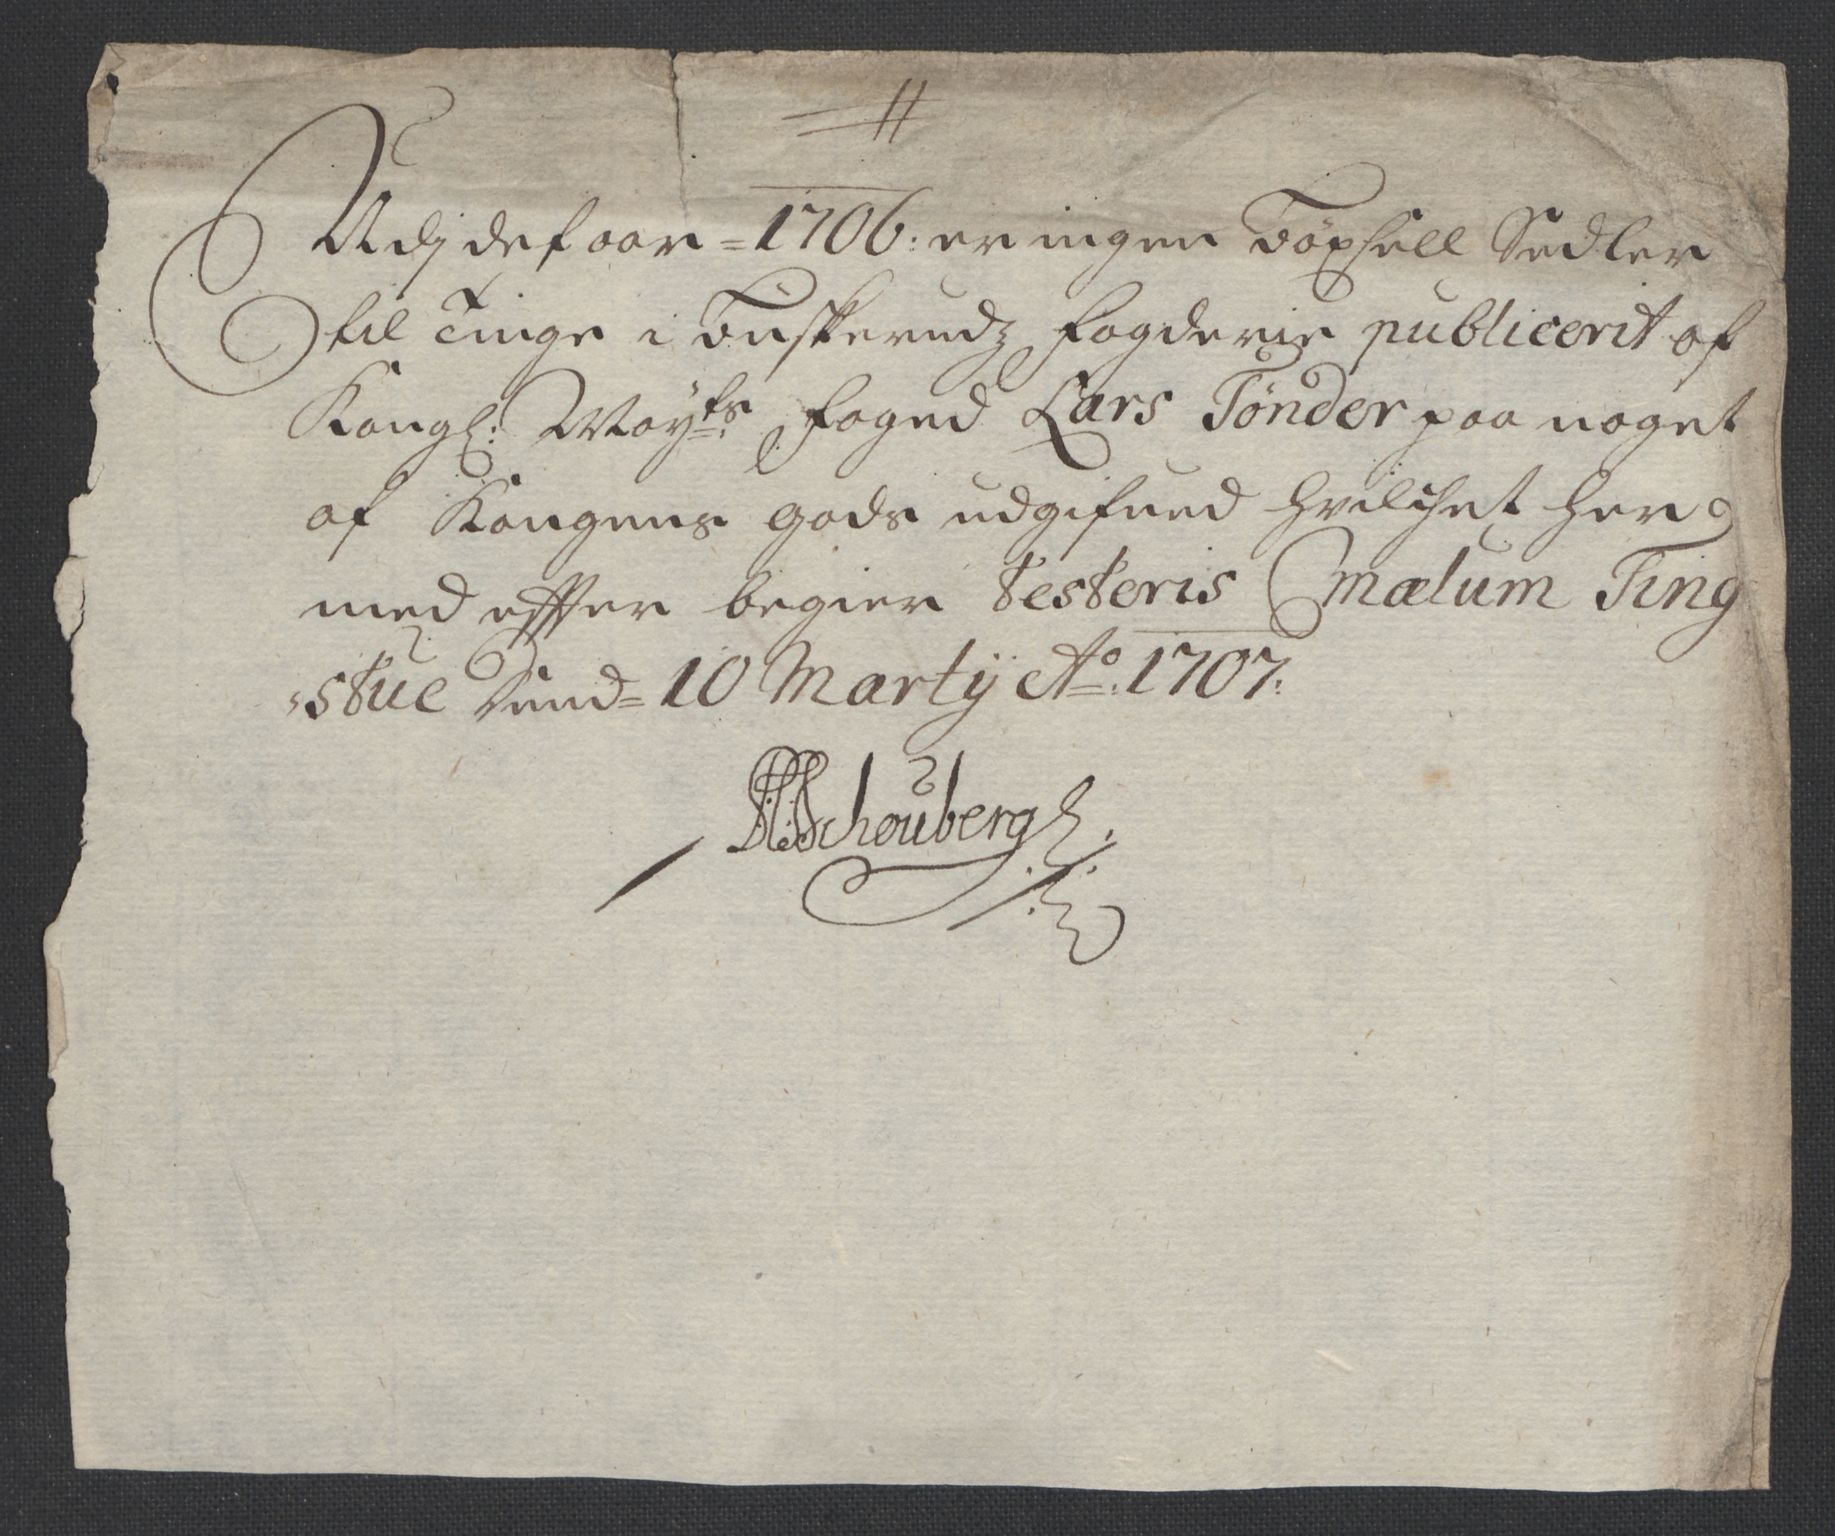 Udj dets aar = 1706: er ingen Böxsell Sedler
til Tinge i Buskeruds fogderie publicerit af
Kongl: Mayts foged Lars Tønder paa noget
af Kongens gods udgifued hvilchet her
med effter begier testeris Mælum Ting
stue dend = 10 Martij Ao: 1707:
Schoubergh.